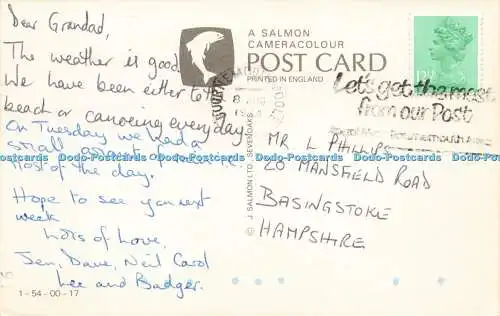 Dear Grandad,
The weather is good
We have been either to the
beach or canoeing everyday
On Tuesday we had a
small
most of the day.
Hope to see you next
week
Lots of Love,
Jen, Dave, Neil Carol
Lee and Badger.
1-54-00-17
A SALMON
CAMERACOLOUR
POST CARD
PRINTED IN ENGLAND
© J SALMON LTD. SEVENOAKS
Let's get the most
from our Post
MR L PHILLIPS
20 MANSFIELD ROAD
BASINGSTOKE
HAMPSHIRE
Dodo-Postcards Dodo-Postcards Dodo-Postcards Dodo-Postcards Dodo-Postcards Dodo-Postcards